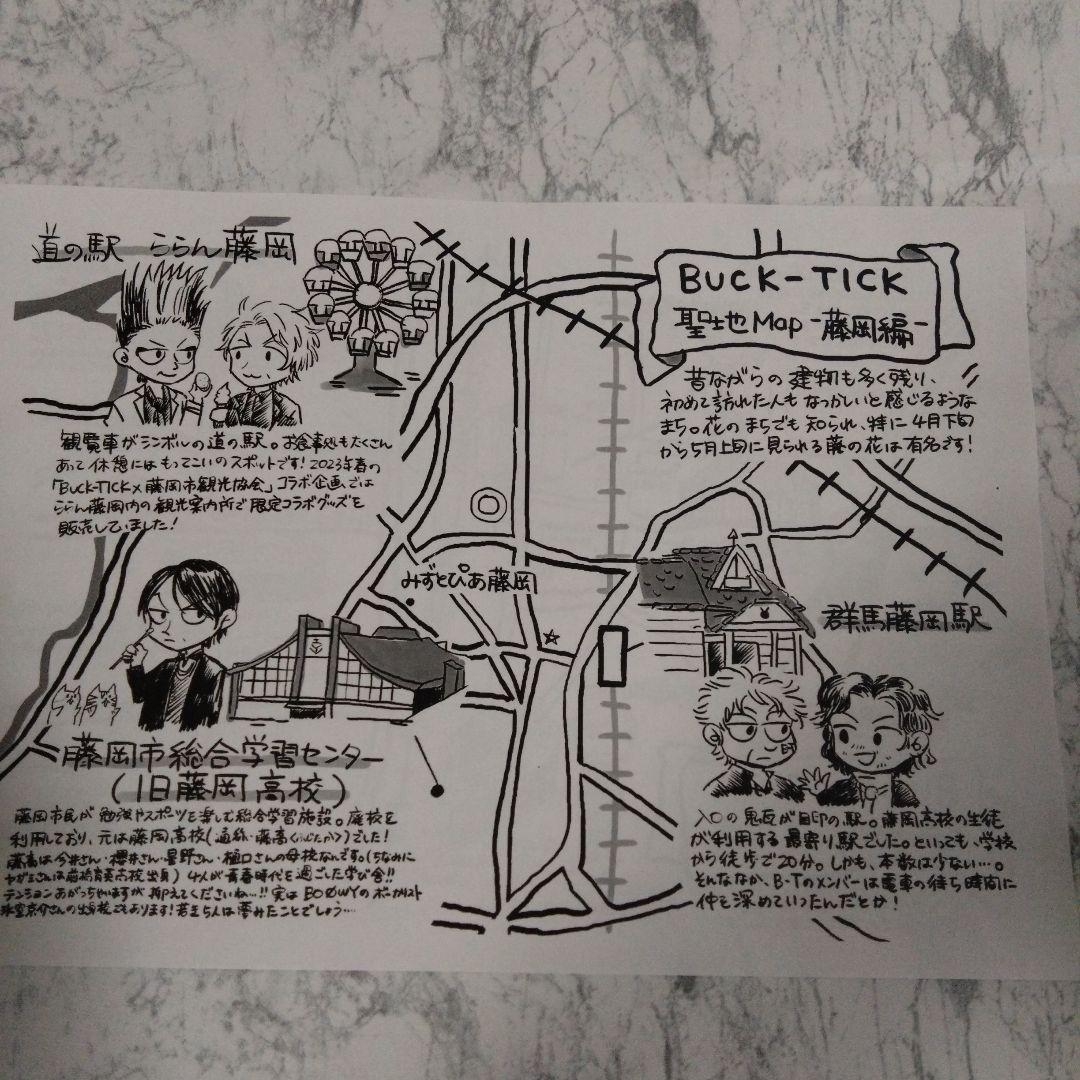 道の駅 ららん藤岡
観覧車がシンボルの道の駅。お食事処もたくさん
あって休憩にはもってこいのスポットです!2023年春の
「BUCK-TICK×藤岡市観光協会」コラボ企画では
ららん藤岡内の観光案内所で限定コラボグッズを
販売していました!
BUCK-TICK
聖地Map -藤岡編-
昔ながらの建物も多く残り、
初めて訪れた人もなつかしいと感じるような
まち。花のまちでも知られ、特に4月下旬
から5月上旬に見られる藤の花は有名です!
みずとぴあ藤岡
群馬藤岡駅
藤岡市総合学習センター
(旧藤岡高校)
藤岡市民が勉強やスポーツを楽しむ総合学習施設。廃校を
利用しており、元は藤岡高校(通称・藤高(ふじたか))でした!
藤高は今井さん・櫻井さん・星野さん・樋口さんの母校なんです。(ちなみに
ヤガミさんは前橋育英高校出身) 4人が青春時代を過ごした学び舎!!
テンションあがっちゃいますが抑えてくださいね…!! 実はBOØWYのボーカリスト
氷室京介さんの出身校でもあります!若き5人は夢みたことでしょう…
入口の鬼瓦が目印の駅。藤岡高校の生徒
が利用する最寄り駅でした。といっても、学校
から徒歩で20分。しかも、本数は少ない…。
そんななか、B-Tのメンバーは電車の待ち時間に
仲を深めていったんだとか!